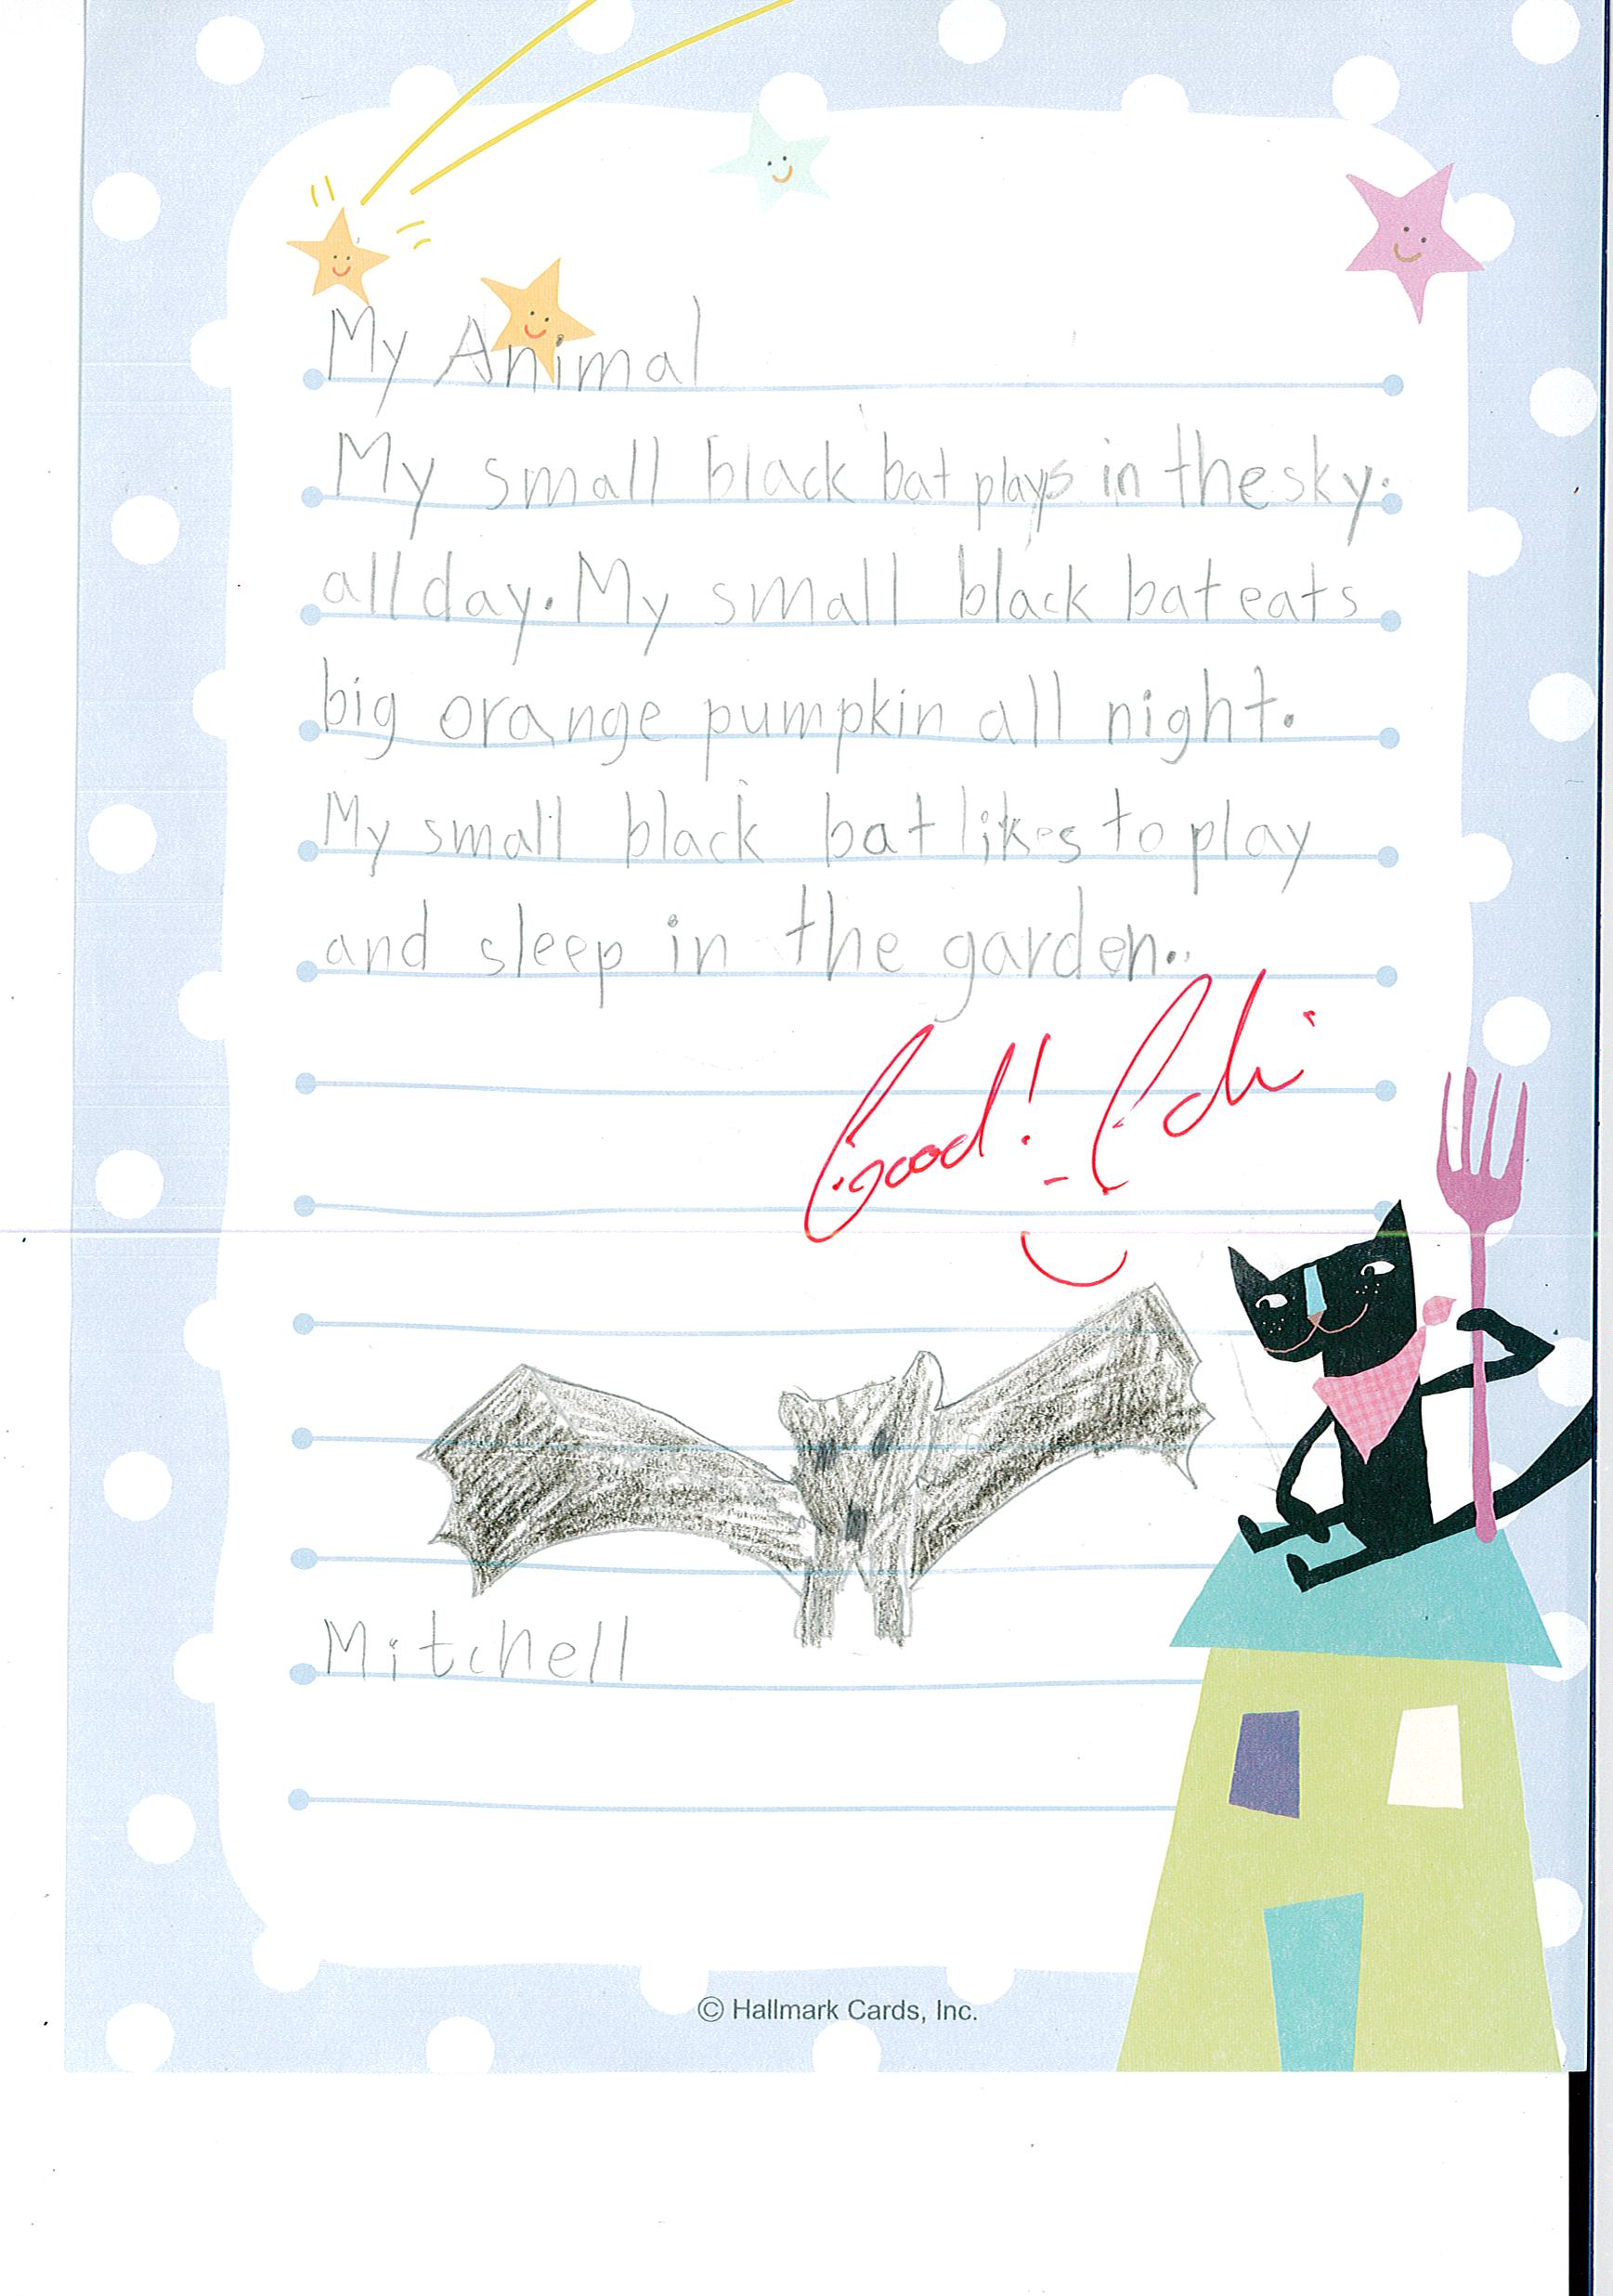 My Animal
My small black bat plays in the sky.
all day. My small black bat eats
big orange pumpkin all night.
My small black bat likes to play
and sleep in the garden..
Good!
Mitchell
© Hallmark Cards, Inc.